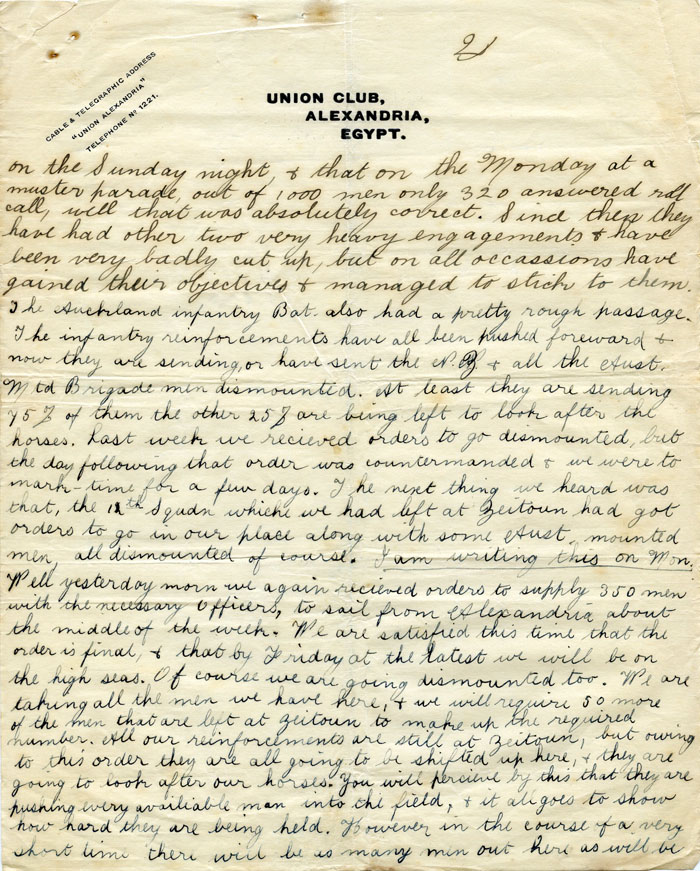 2/
CABLE & TELEGRAPHIC ADDRESS
"UNION ALEXANDRIA"
TELEPHONE Nº 1221.
UNION CLUB,
ALEXANDRIA,
EGYPT.
on the Sunday night, & that on the Monday at a
muster parade, out of 1000 men only 320 answered roll
call, well that was absolutely correct. Since then they
have had other two very heavy engagements & have
been very badly cut up, but on all occassions have
gained their objectives & managed to stick to them.
The Auckland infantry Bat. also had a pretty rough passage.
The infantry reinforcements have all been pushed foreward &
now they are sending, or have sent the N.Z & all the Aust.
Mtd Brigade men dismounted. At least they are sending
75% of them the other 25% are being left to look after the
horses. Last week we recieved orders to go dismounted, but
the day following that order was countermanded & we were to
mark-time for a few days. The next thing we heard was
that, the Squdn whiche we had left at Zeitoun had got
orders to go in our place along with some Aust. mounted
men, all dismounted of course. I am writing this on Mon.
Well yesterday morn we again recieved orders to supply 350 men
with the necessary Officers, to sail from Alexandria about
the middle of the week. We are satisfied this time that the
order is final, & that by Friday at the latest we will be on
the high seas. Of course we are going dismounted too. We are
taking all the men we have here, & we will require 50 more
of the men that are left at Zeitoun to make up the required
number. All our reinforcements are still at Zeitoun, but owing
to this order they are all going to be shifted up here, & they are
going to look after our horses. You will percieve by this that they are
pushing every availiable man into the field, & it all goes to show
how hard they are being held. However in the course of a very
short time there will be as many men out here as will be